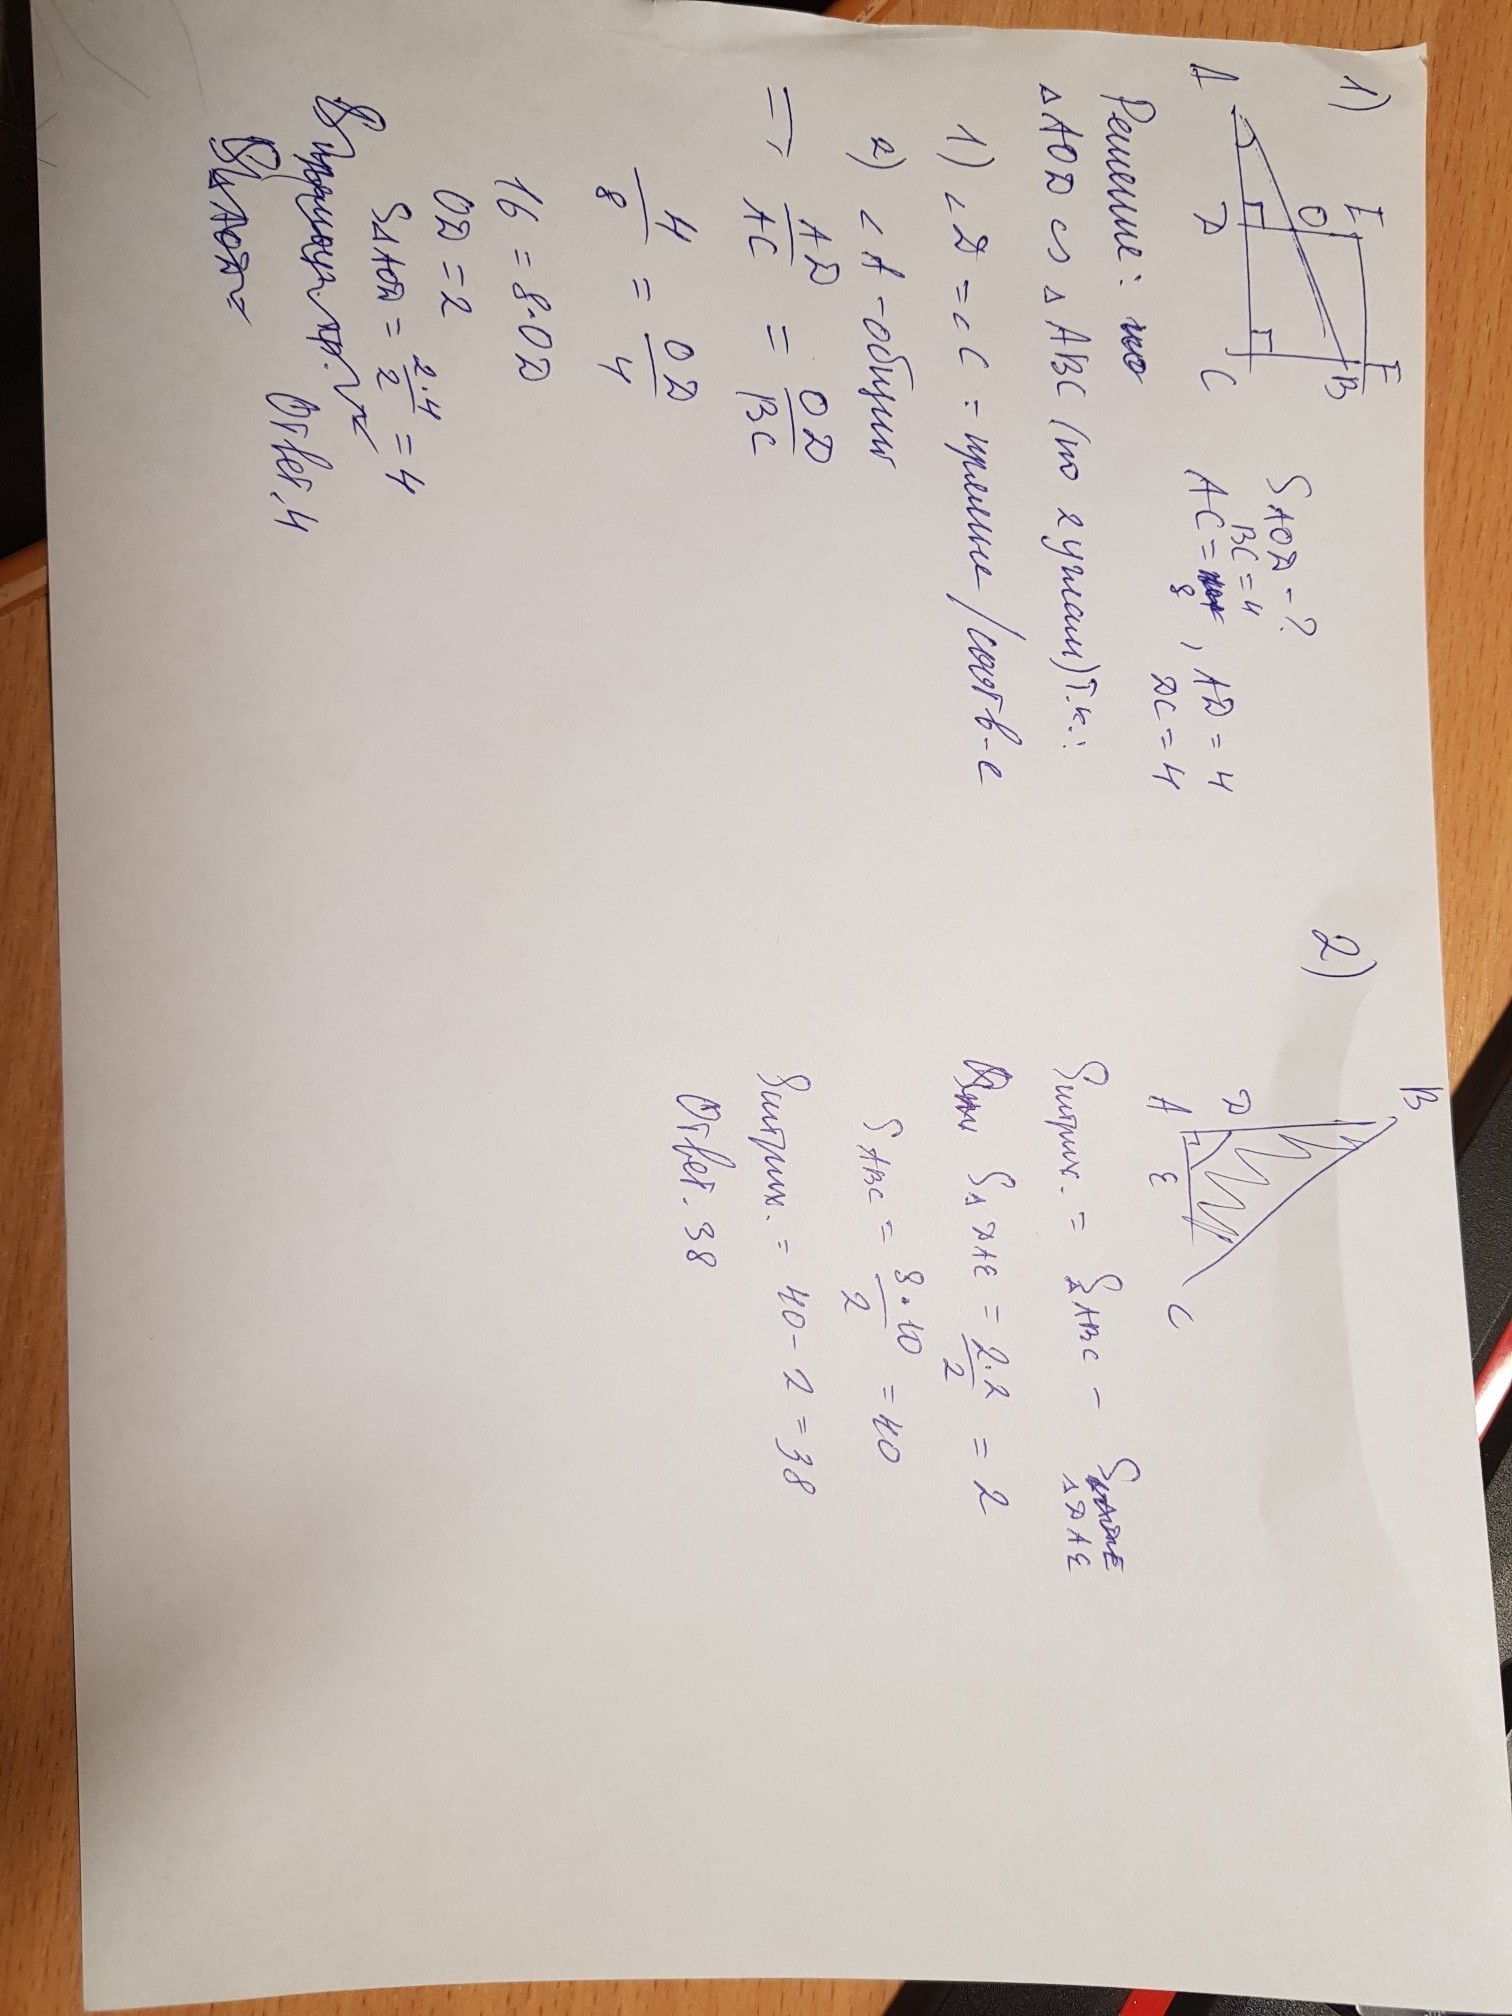 1)
A
D
C
O
E
F
B
S AOD - ?
BC = 4
AC = 8, AD = 4
DC = 4
Решение: по
△AOD ∽ △ABC (по 2 углам) т.к.:
1) ∠D = ∠C - прямые /соотв-е
2) ∠A - общий
=> AD/AC = OD/BC
4/8 = OD/4
16 = 8·OD
OD = 2
S△AOD = 2·4/2 = 4
Ответ. 4
2)
B
D
A
E
C
Sштрих. = SABC - S△DAE
S△DAE = 2·2/2 = 2
SABC = 8·10/2 = 40
Sштрих. = 40 - 2 = 38
Ответ. 38